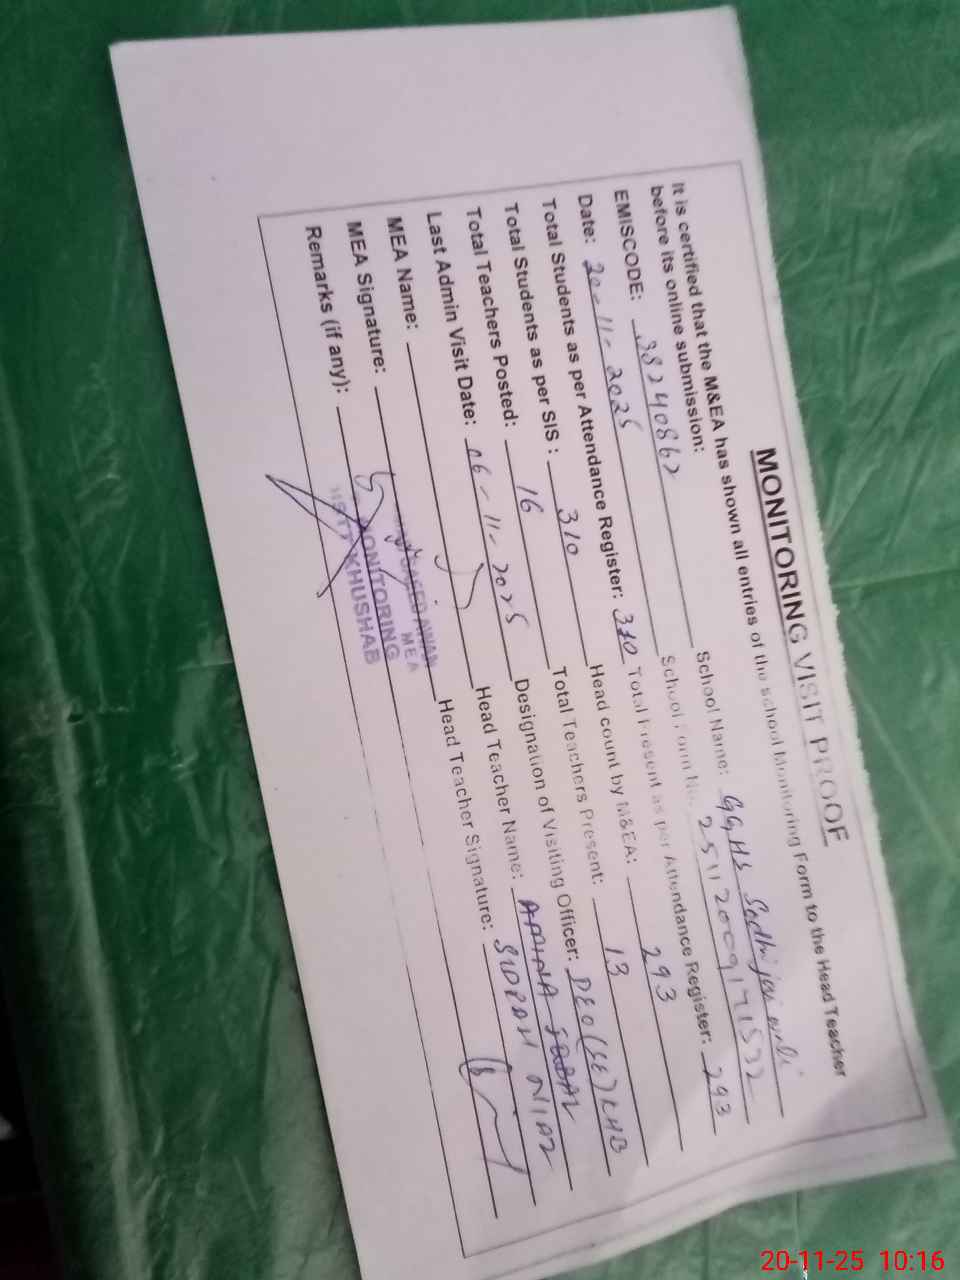 MONITORING VISIT PROOF
It is certified that the M&EA has shown all entries of the school Monitoring Form to the Head Teacher
before its online submission:
EMISCODE: 38240862 School Name: GGHS
Date: 20-11-2025 School Form No. 
Total Students as per Attendance Register: 310 Total Present as per Attendance Register: 293
Total Students as per SIS : 310 Head count by M&EA: 293
Total Teachers Posted: 16 Total Teachers Present: 13
Last Admin Visit Date: 06-11-2025 Designation of Visiting Officer: DEO(SE)KHB
MEA Name: Head Teacher Name: NIAZ
MEA Signature: Head Teacher Signature:
Remarks (if any):
SAEED AWAN
MEA
MONITORING
KHUSHAB
20-11-25 10:16